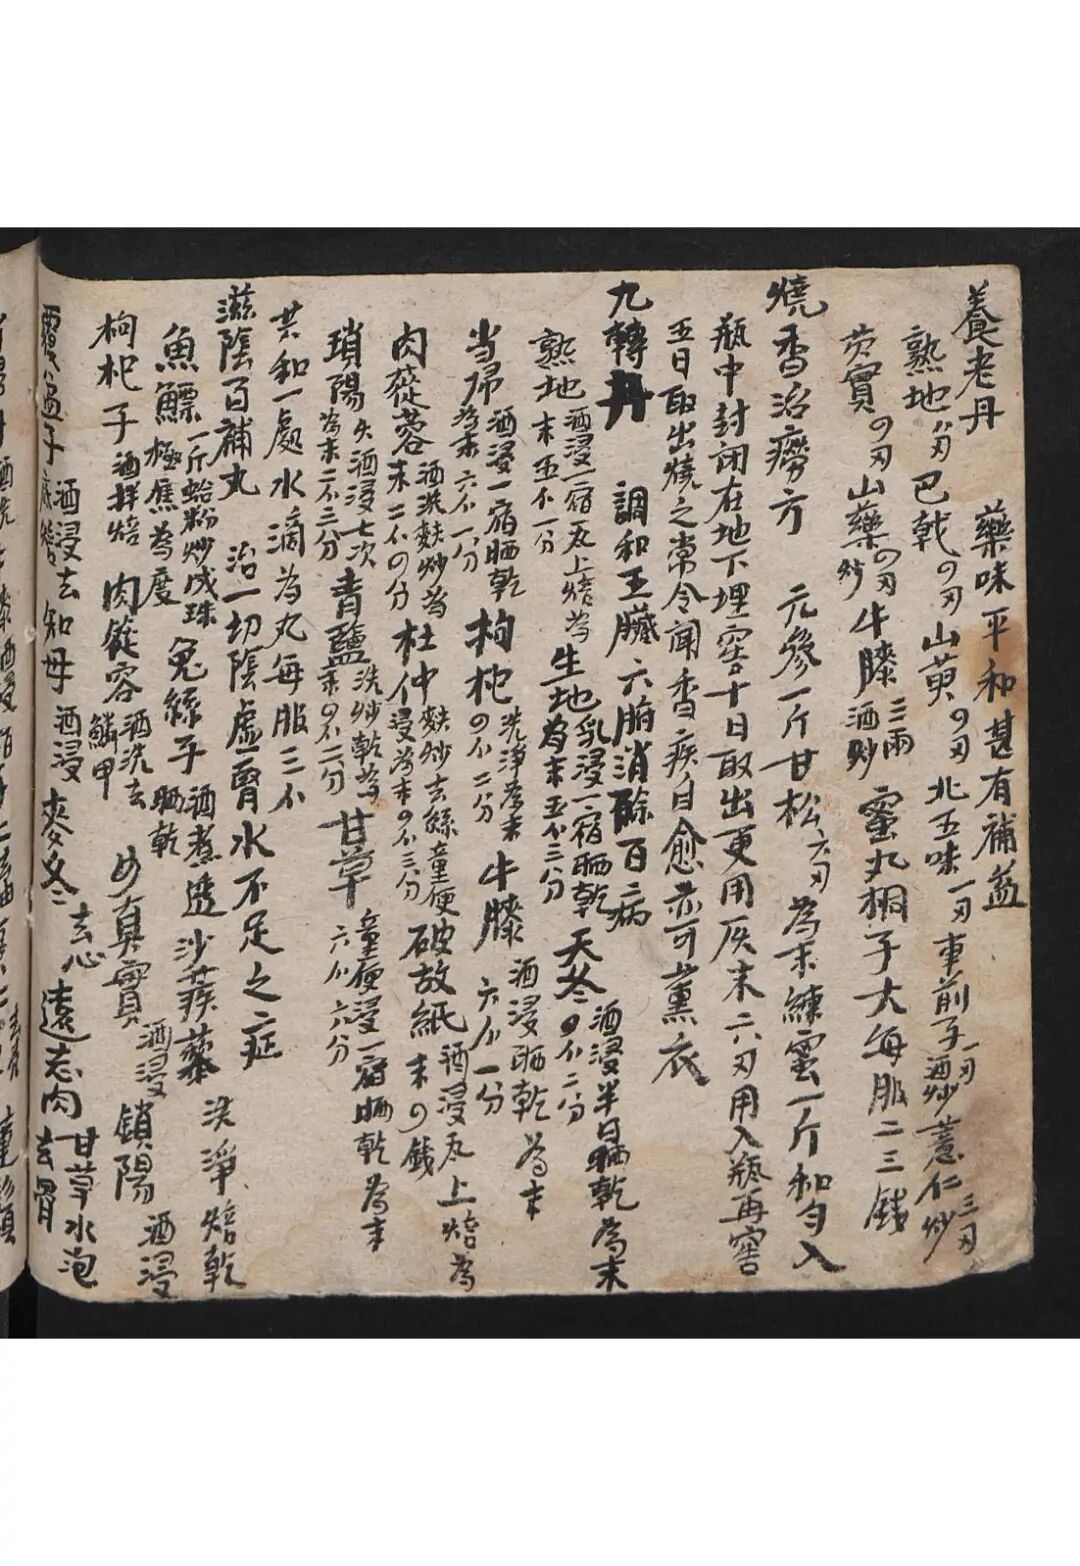 養老丹 藥味平和甚有補益
熟地八刄 巴戟四刄 山萸四刄 北五味一刄 車前子一刄酒炒 薏仁炒三刄
芡實四刄 山藥四刄炒 牛膝三兩酒炒 蜜丸桐子大每服二三錢
燒香治癆方 元參一斤甘松六刄為末練蜜一斤和匀入
瓶中封閉在地下埋窖十日取出更用灰末六刄用入瓶再窖
五日取出燒之常令聞香疾自愈亦可薰衣
九轉丹 調和五臟六腑消除百病
熟地酒浸一宿瓦上焙為末五个一分 生地乳浸一宿晒乾為末五个三分 天冬四个二分酒浸半日晒乾為末
当帰酒浸一宿晒乾為末六个一分 枸杞洗淨為末四个二分 牛膝六个一分酒浸晒乾為末
肉蓯蓉酒洗麩炒為末二个四分 杜仲麩炒去絲童便浸為末四个三分 破故紙酒浸瓦上焙為末四錢
瑣陽火酒浸七次為末二个三分 青鹽洗炒乾為末四个二分 甘草童便浸一宿晒乾為末六个六分
共和一處水滴為丸每服三个
滋陰百補丸 治一切陰虛腎水不足之症
魚鰾一斤蛤粉炒成珠極焦為度 兔絲子酒煮透晒乾 沙蒺藜洗淨焙乾
枸杞子酒拌焙 肉蓯容酒洗去鱗甲 女真實酒浸 鎖陽酒浸
覆盆子酒浸去底焙 知母酒浸 麥冬去心 遠志肉甘草水泡去骨